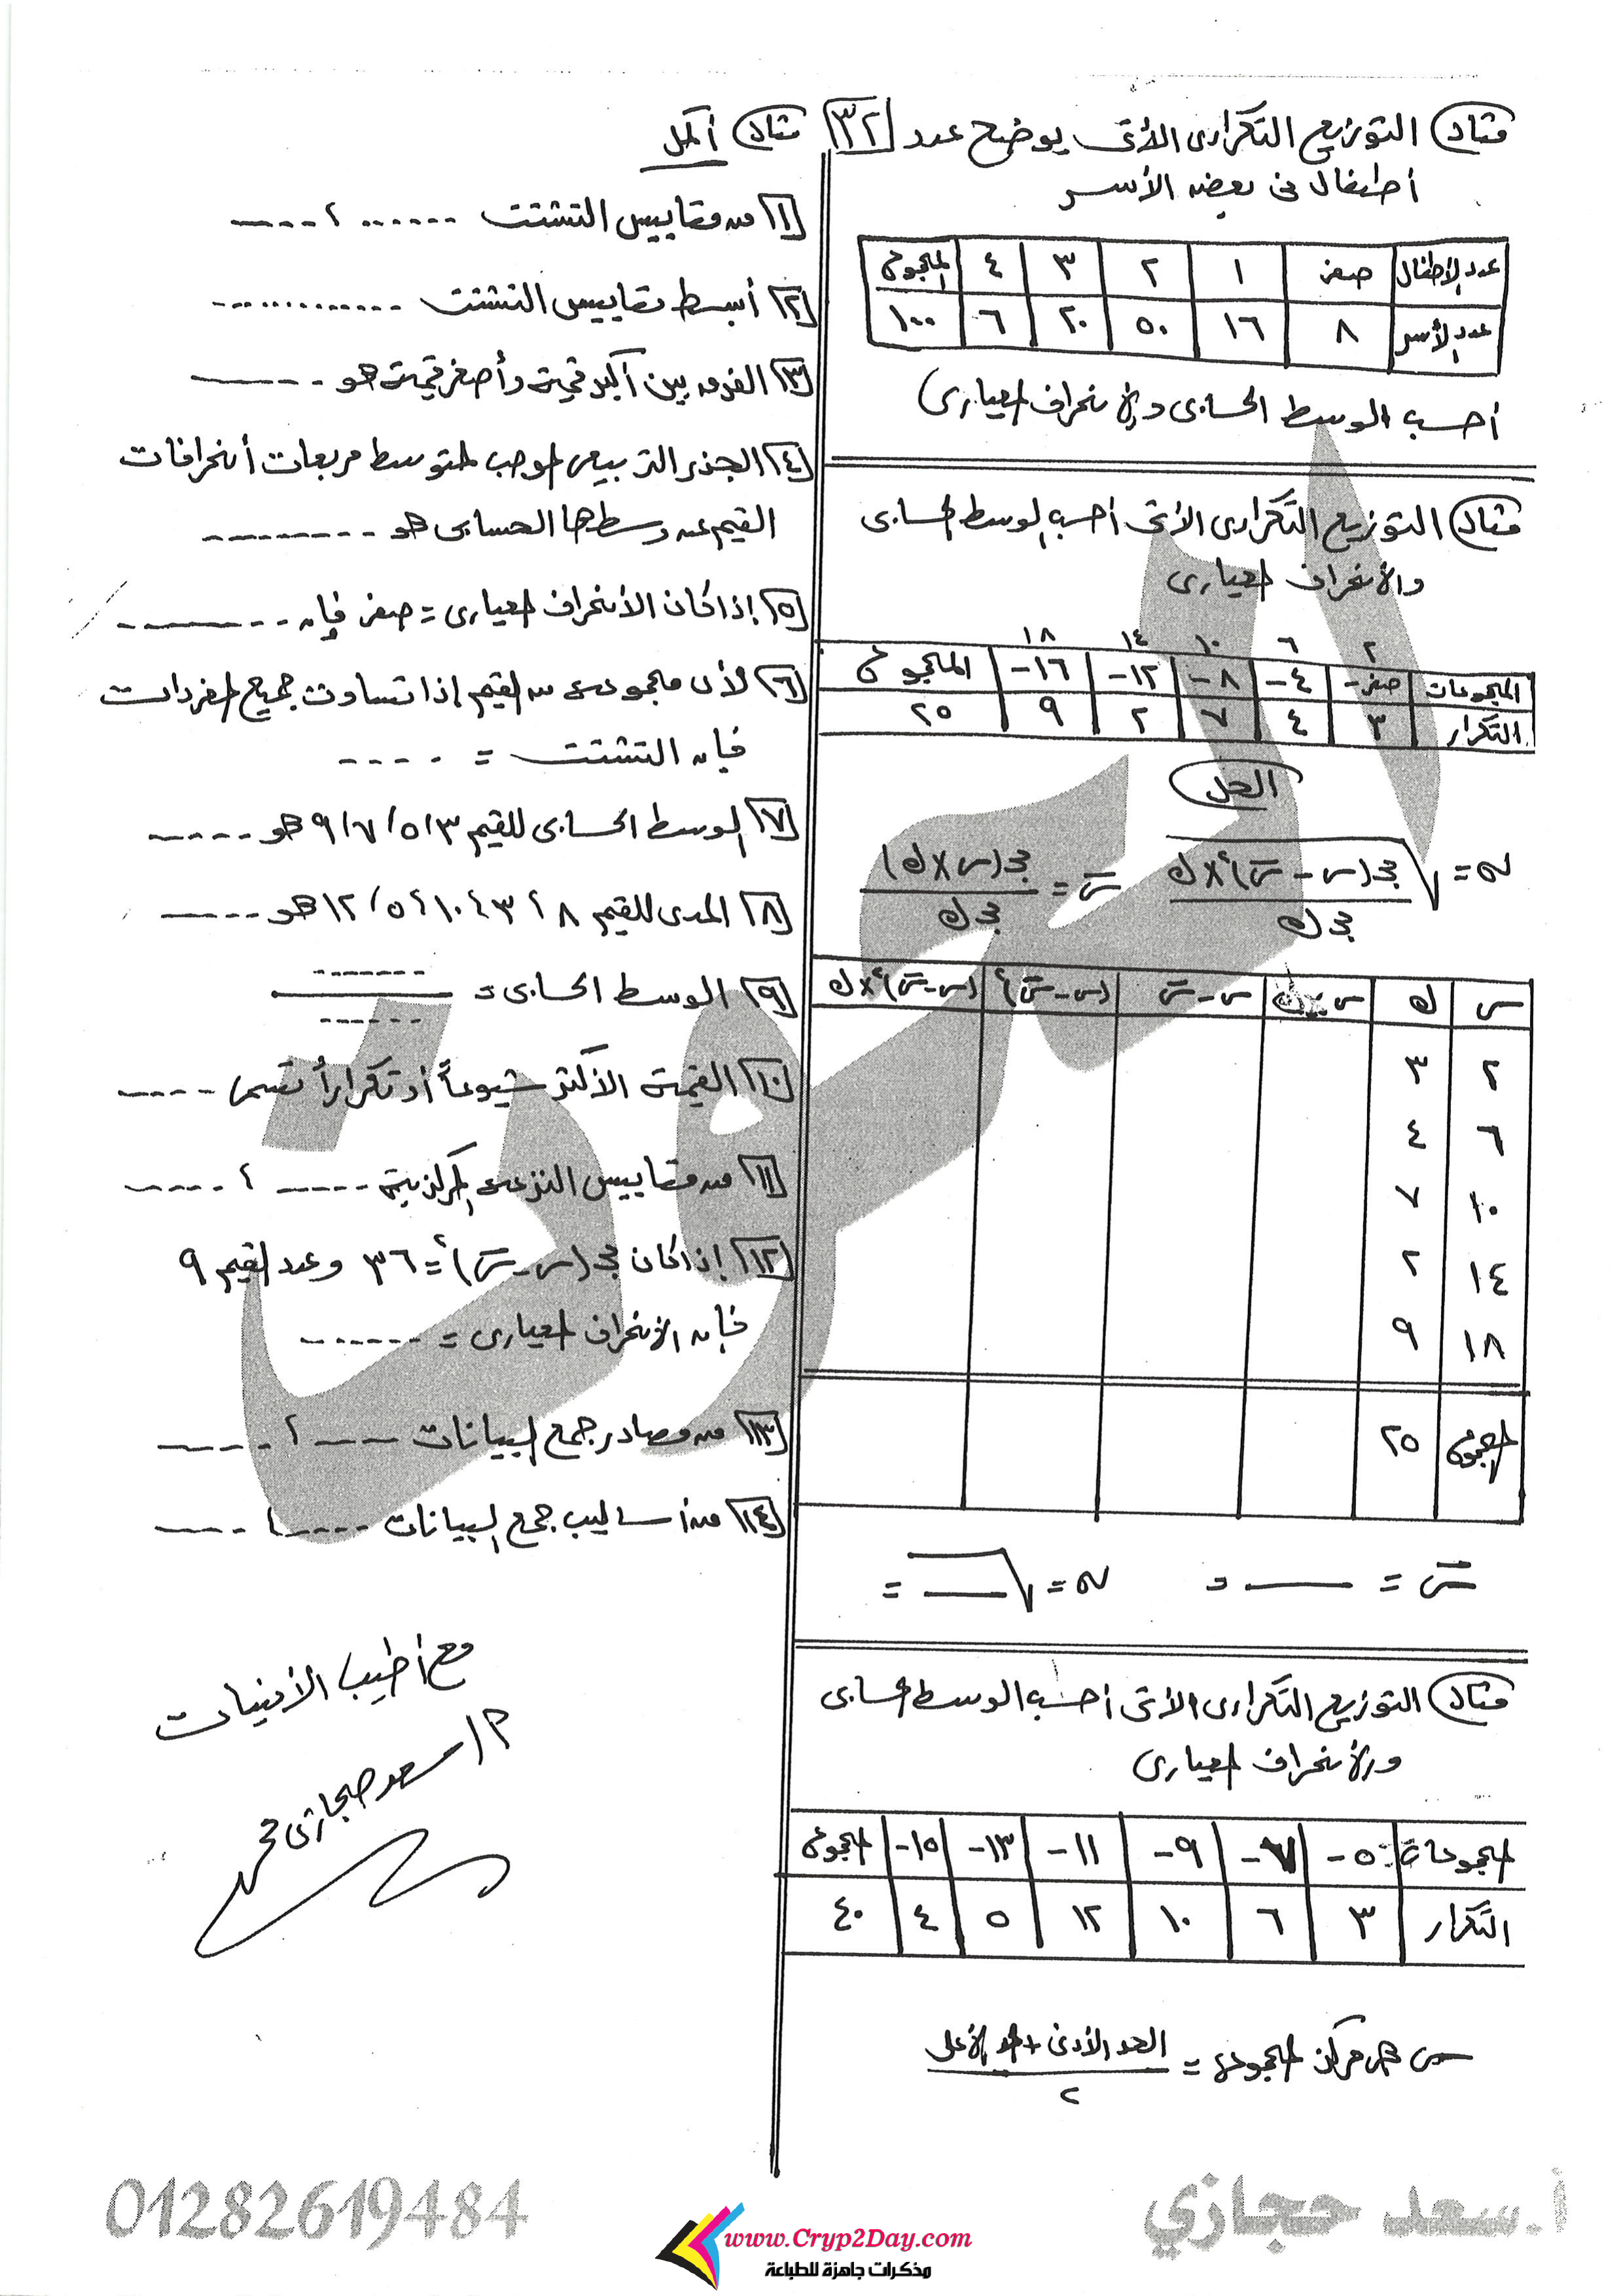 ٣٢
مثال التوزيع التكرارى الأتى يوضح عدد
أطفال فى بعض الأسر
عدد الأطفال صفر ١ ٢ ٣ ٤ المجموع
عدد الأسر ٨ ١٦ ٥٠ ٢٠ ٦ ١٠٠
أحسب الوسط الحسابى والانحراف المعيارى
مثال التوزيع التكرارى الأتى أحسب الوسط الحسابى
والانحراف المعيارى
٢ ٦ ١٠ ١٤ ١٨
المجموعات صفر- ٤- ٨- ١٢- ١٦- المجموع
التكرار ٣ ٤ ٧ ٢ ٩ ٢٥
الحل
σ = √(مجـ(س - س̄)² × ك / مجـ ك) س̄ = مجـ(س × ك) / مجـ ك
س ك س × ك س - س̄ (س - س̄)² (س - س̄)² × ك
٢ ٣
٦ ٤
١٠ ٧
١٤ ٢
١٨ ٩
المجموع ٢٥
س̄ = ــــــ = σ = √ــــــ =
مثال التوزيع التكرارى الأتى أحسب الوسط الحسابى
والانحراف المعيارى
المجموعات ٥- ٧- ٩- ١١- ١٣- ١٥- المجموع
التكرار ٣ ٦ ١٠ ١٢ ٥ ٤ ٤٠
س هى مركز المجموعة = الحد الأدنى + الحد الأعلى / ٢
مثال أكمل
١ من مقاييس التشتت ...... ، ----
٢ أبسط مقاييس التشتت .............
٣ الفرق بين أكبر قيمة وأصغر قيمة هو -----
٤ الجذر التربيعى الموجب لمتوسط مربعات أنحرافات
القيم عن وسطها الحسابى هو ---------
٥ إذا كان الأنحراف المعيارى = صفر فإن --------
٦ لأى مجموعة من القيم إذا تساوت جميع المفردات
فإن التشتت = ----
٧ الوسط الحسابى للقيم ٣، ٥، ٧، ٩ هو -----
٨ المدى للقيم ٨، ٣، ١٠، ٥، ١٢ هو -----
٩ الوسط الحسابى = ------- / ------
١٠ القيمة الأكثر شيوعاً أو تكراراً تسمى -----
١١ من مقاييس النزعة المركزية ----- ، -----
١٢ إذا كان مجـ (س - س̄)² = ٣٦ وعدد القيم ٩
فإن الأنحراف المعيارى = -------
١٣ من مصادر جمع البيانات ---- ، -----
١٤ من أساليب جمع البيانات ----- ، -----
مع أطيب الأمنيات
م/ سعد حجازى محمد
01282619484
أ.سعد حجازي
www.Cryp2Day.com
مذكرات جاهزة للطباعة